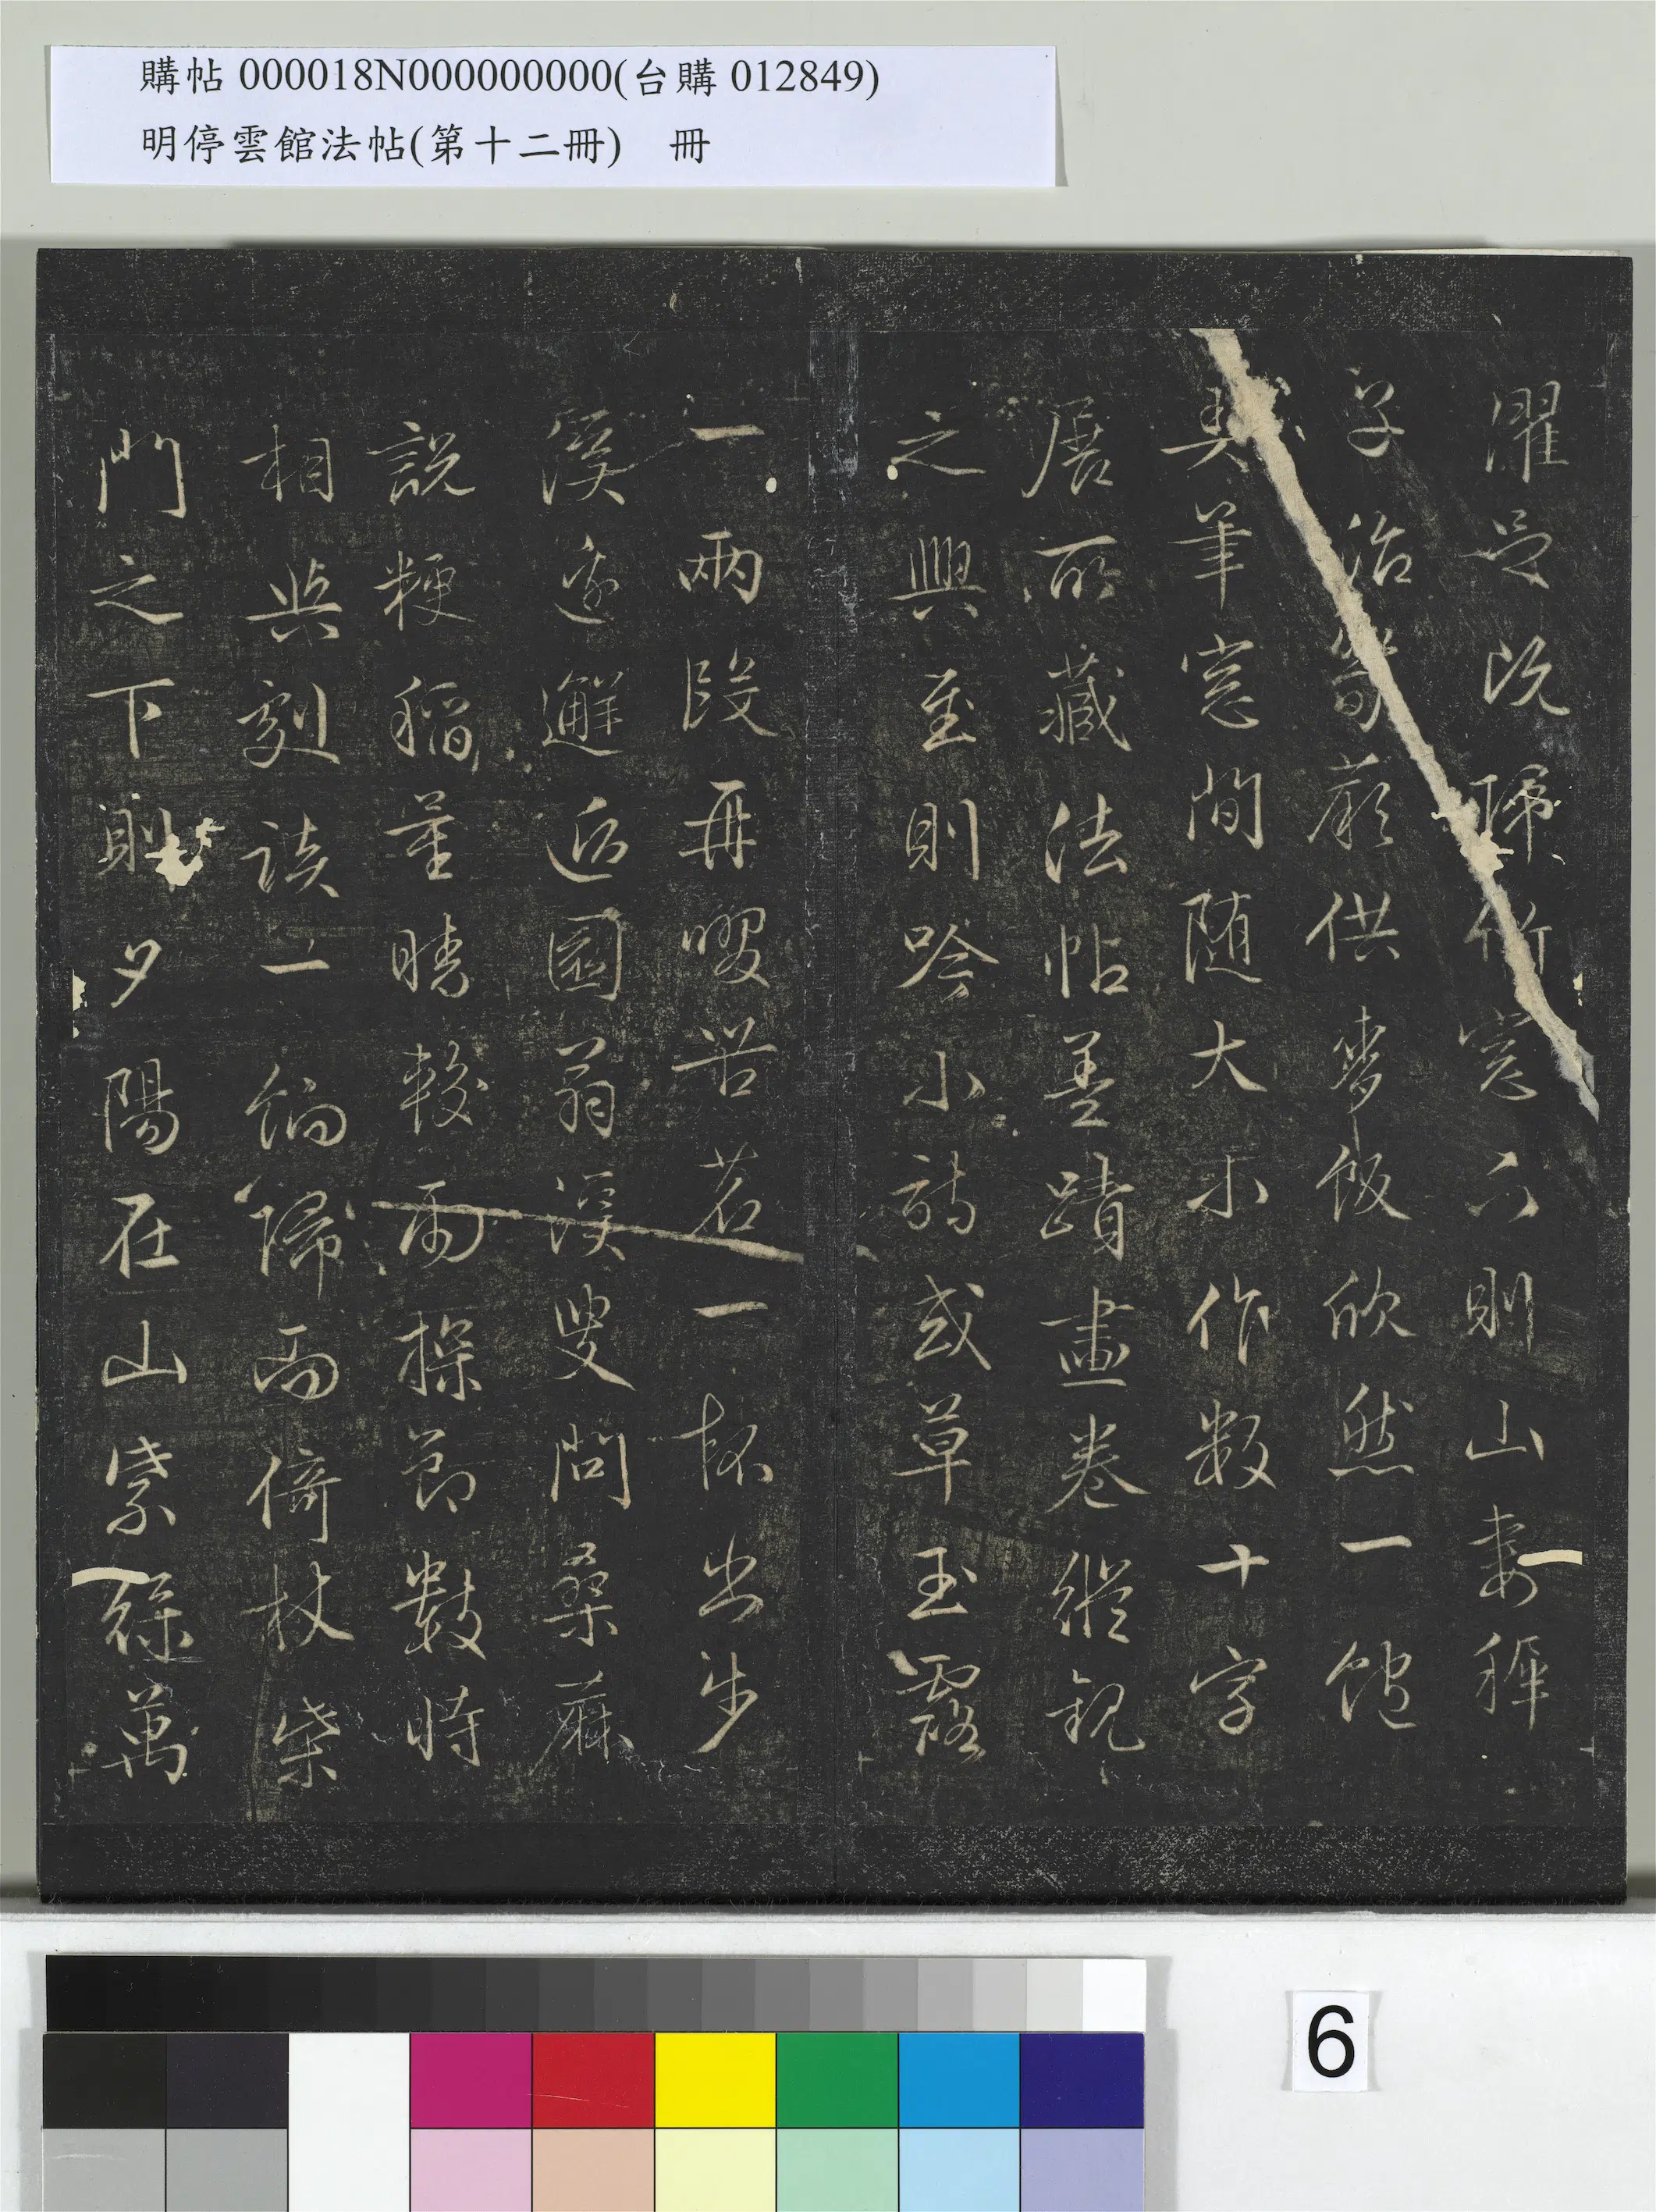 購帖 000018N000000000(台購 012849)
明停雲館法帖(第十二冊) 冊
濯足既歸竹窓下則山妻穉
子治笋蕨供麥飯欣然一飽
弄筆窓間隨大小作數十字
展所藏法帖墨蹟畫卷縱觀
之興至則吟小詩或草玉露
一兩段再啜苦茗一杯出步
溪邊邂逅園翁溪叟問桑麻
說粳稻量晴較雨探節數時
相與劇談一餉歸而倚杖柴
門之下則夕陽在山紫綠萬
6